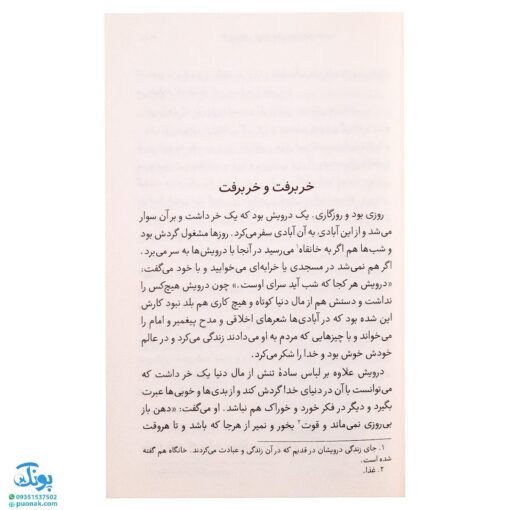 خر برفت و خر برفت
روزی بود و روزگاری. یک درویش بود که یک خر داشت و بر آن سوار
می‌شد و از این آبادی به آن آبادی سفر می‌کرد. روزها مشغول گردش بود
و شب‌ها هم اگر به خانقاه۱ می‌رسید در آنجا با درویش‌ها به سر می‌برد.
اگر هم نمی‌شد در مسجدی یا خرابه‌ای می‌خوابید و با خود می‌گفت:
«درویش هر کجا که شب آید سرای اوست.» چون درویش هیچ‌کس را
نداشت و دستش هم از مال دنیا کوتاه و هیچ کاری هم بلد نبود کارش
این شده بود که در آبادی‌ها شعرهای اخلاقی و مدح پیغمبر و امام را
می‌خواند و با چیزهایی که مردم به او می‌دادند زندگی می‌کرد و در عالم
خودش خوش بود و خدا را شکر می‌کرد.
درویش علاوه بر لباس سادهٔ تنش از مال دنیا یک خر داشت که
می‌توانست با آن در دنیای خدا گردش کند و از بدی‌ها و خوبی‌ها عبرت
بگیرد و دیگر در فکر خورد و خوراک هم نباشد. او می‌گفت: «دهن باز
بی‌روزی نمی‌ماند و قوت۲ بخور و نمیر از هرجا که باشد و تا هروقت
۱. جای زندگی درویشان در قدیم که در آن زندگی و عبادت می‌کردند. خانگاه هم گفته
شده است.
۲. غذا.
پونک
09351537502
puonak.com